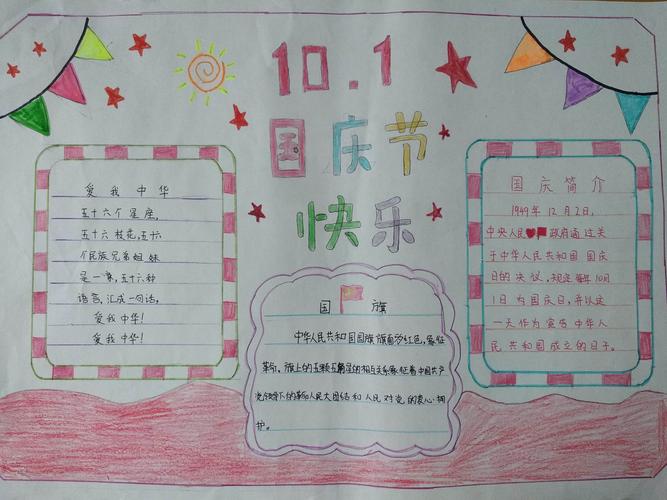 10.1
国庆节
快乐
爱我中华
五十六个星座,
五十六枝花,五十六
个民族兄弟姐妹
是一家,五十六种
语言,汇成一句话,
爱我中华!
爱我中华!
国旗
中华人民共和国国旗旗面为红色,象征
革命。旗上的五颗五角星的相互关系象征着中国共产
党领导下的革命人民大团结和人民对党的衷心拥
护。
国庆简介
1949年12月2日,
中央人民政府通过关
于中华人民共和国国庆
日的决议,规定每年10月
1日为国庆日,并以这
一天作为宣告中华人
民共和国成立的日子。